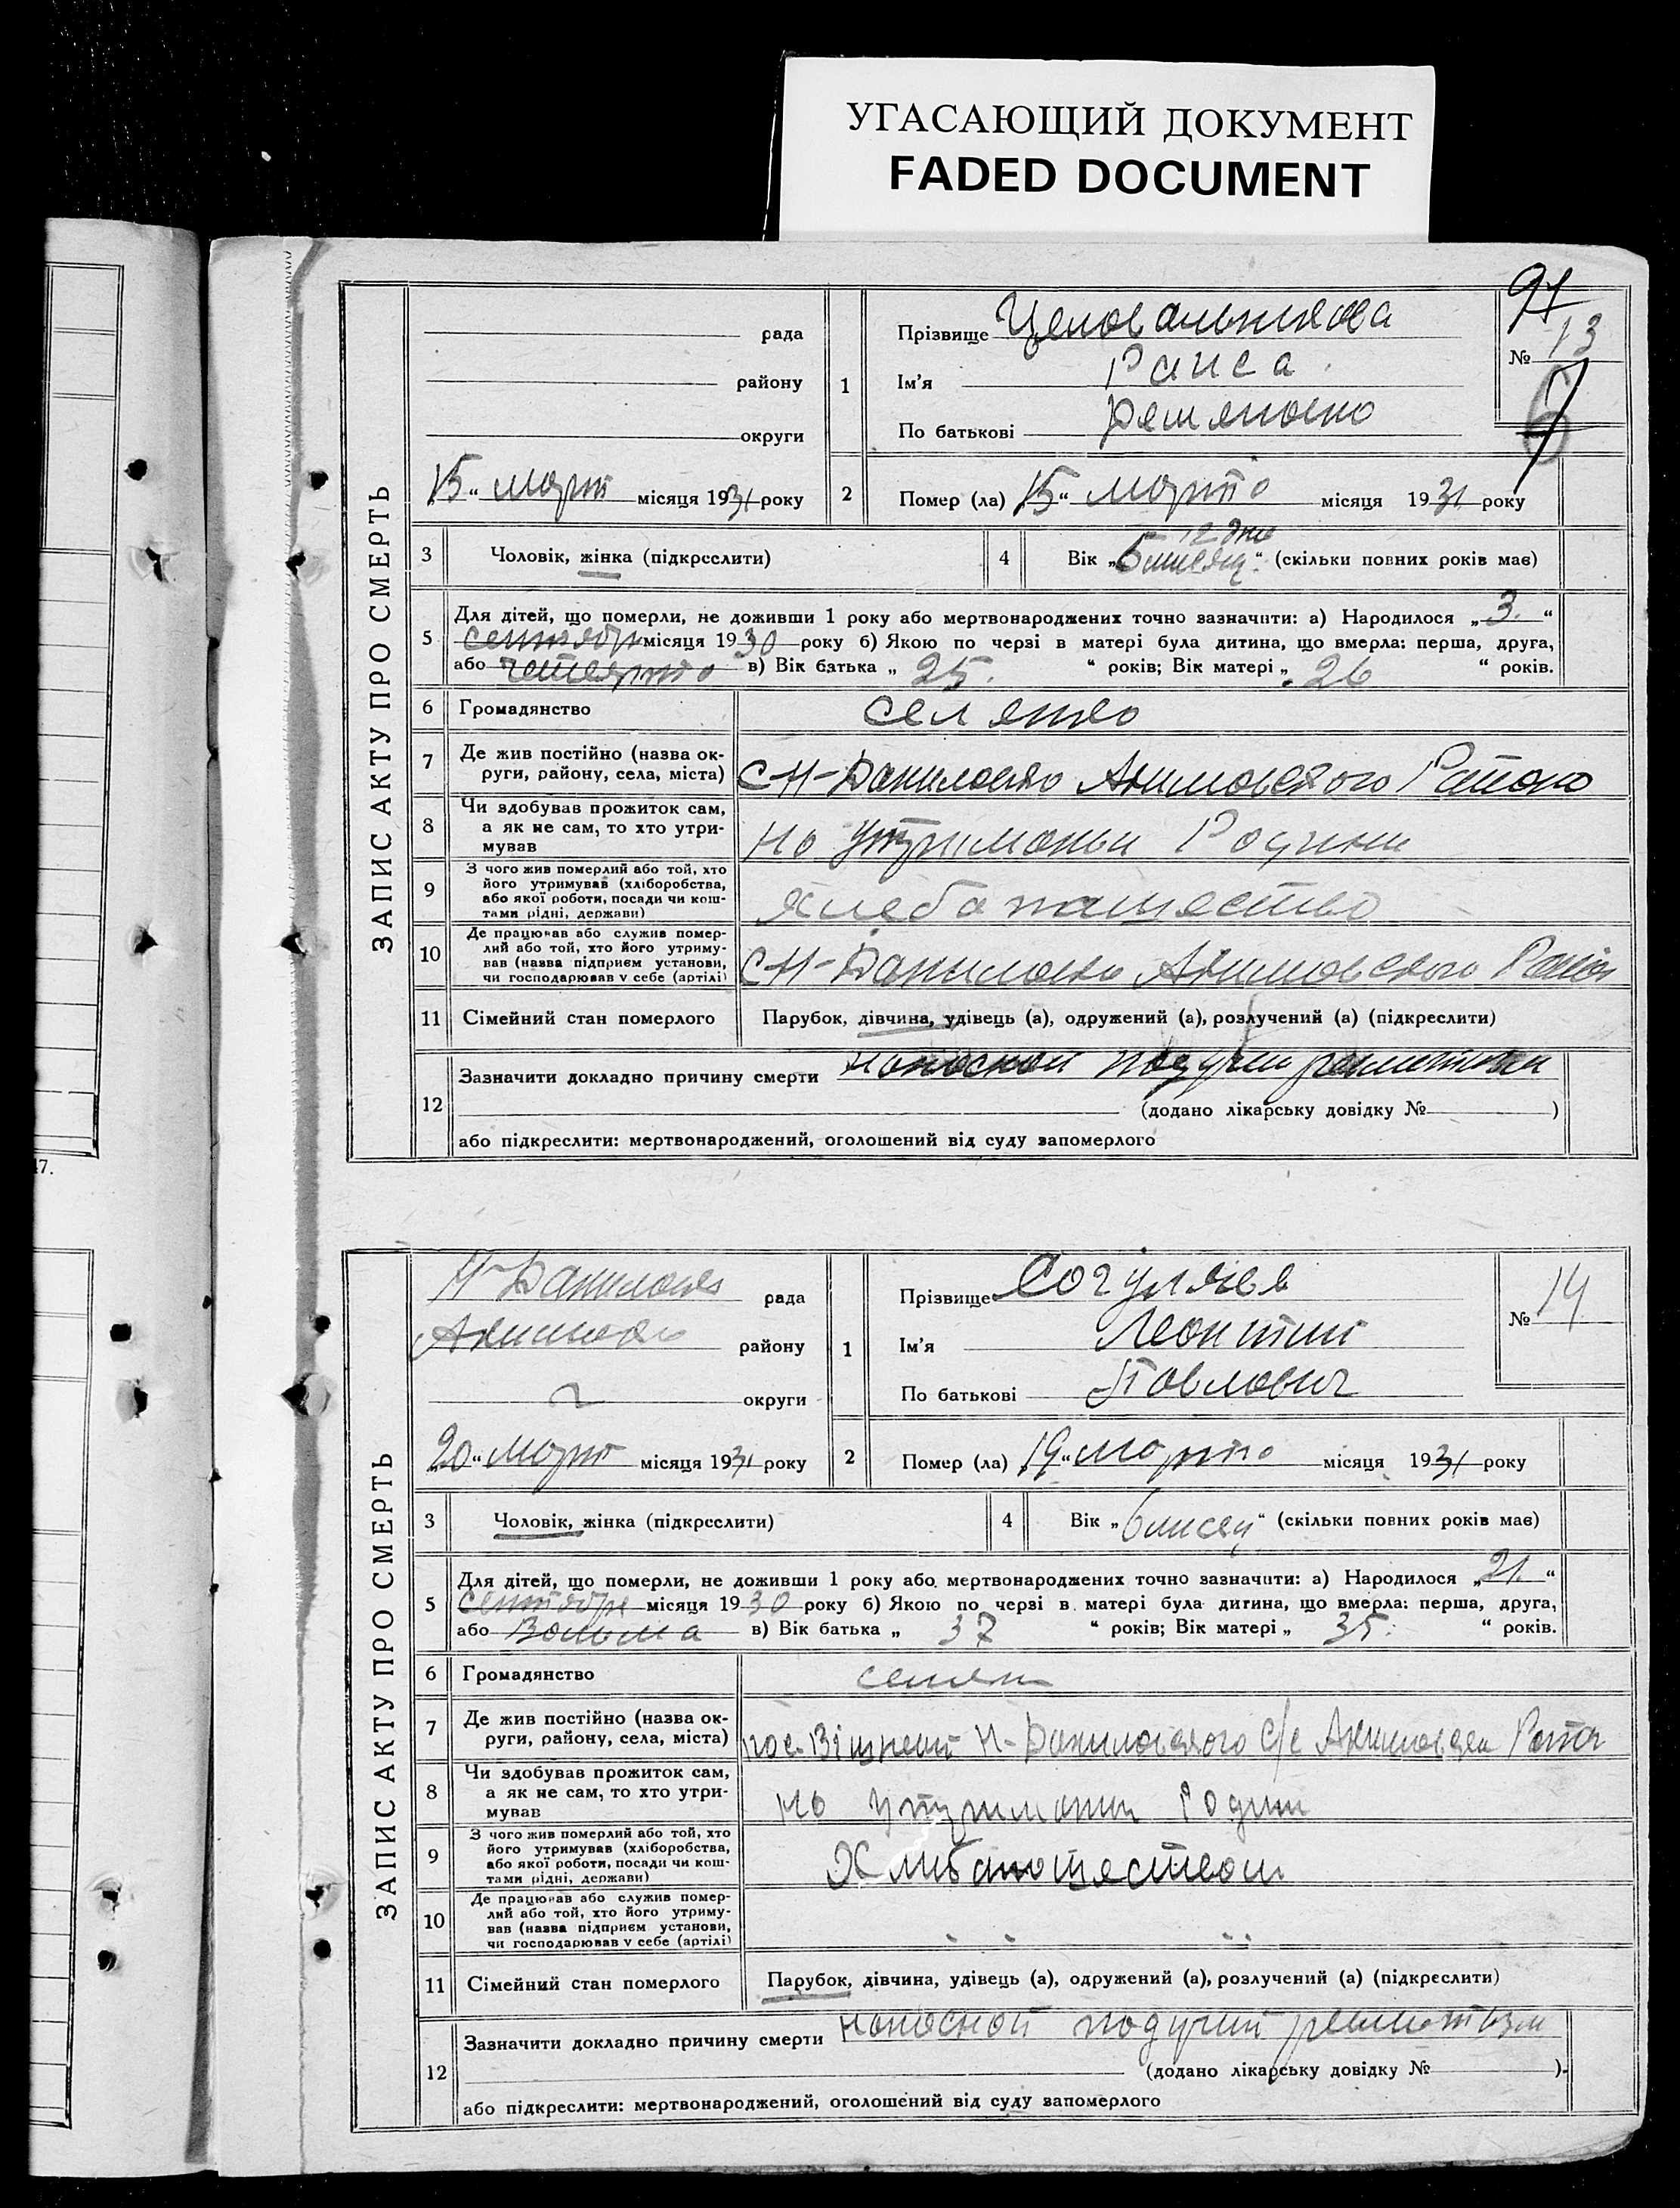 УГАСАЮЩИЙ ДОКУМЕНТ
FADED DOCUMENT
97
ЗАПИС АКТУ ПРО СМЕРТЬ
рада
району
округи
"15" март місяця 1931 року
1
Прізвище Целовальнікова
Ім'я Раиса
По батькові
№ 13
6
2
Помер (ла) "15" марта місяця 1931 року
3
Чоловік, жінка (підкреслити)
4
12 дне
Вік „6 месяц" (скільки повних років має)
5
Для дітей, що померли, не доживши 1 року або мертвонароджених точно зазначити: а) Народилося „3."
сентября місяця 1930 року б) Якою по черзі в матері була дитина, що вмерла: перша, друга,
або четверта в) Вік батька „ 25. " років; Вік матері „ 26 " років.
6
Громадянство
селянка
7
Де жив постійно (назва ок-
руги, району, села, міста)
С Н-Даниловка Акимовского Района
8
Чи здобував прожиток сам,
а як не сам, то хто утри-
мував
На утримании Родини
9
З чого жив померлий або той, хто
його утримував (хліборобства,
або якої роботи, посади чи кош-
тами рідні, держави)
хлебапашество
10
Де працював або служив помер-
лий або той, хто його утриму-
вав (назва підприєм установи,
чи господарював у себе (артілі)
С Н-Даниловка Акимовского Район
11
Сімейний стан померлого
Парубок, дівчина, удівець (а), одружений (а), розлучений (а) (підкреслити)
12
Зазначити докладно причину смерти
(додано лікарську довідку № )
або підкреслити: мертвонароджений, оголошений від суду запомерлого
47.
ЗАПИС АКТУ ПРО СМЕРТЬ
Н-Даниловка рада
Акимовка району
округи
"20" март місяця 1931 року
1
Прізвище
Ім'я Леонтий
По батькові Павлович
№ 14
2
Помер (ла) "19" марта місяця 1931 року
3
Чоловік, жінка (підкреслити)
4
Вік „6 месяц" (скільки повних років має)
5
Для дітей, що померли, не доживши 1 року або мертвонароджених точно зазначити: а) Народилося „21."
сентября місяця 1930 року б) Якою по черзі в матері була дитина, що вмерла: перша, друга,
або Восьма в) Вік батька „ 37 " років; Вік матері „ 35. " років.
6
Громадянство
селян
7
Де жив постійно (назва ок-
руги, району, села, міста)
пос. Н-Даниловского с/с Район
8
Чи здобував прожиток сам,
а як не сам, то хто утри-
мував
На утримании Родин
9
З чого жив померлий або той, хто
його утримував (хліборобства,
або якої роботи, посади чи кош-
тами рідні, держави)
Хлибапашеством
10
Де працював або служив помер-
лий або той, хто його утриму-
вав (назва підприєм установи,
чи господарював у себе (артілі)
11
Сімейний стан померлого
Парубок, дівчина, удівець (а), одружений (а), розлучений (а) (підкреслити)
12
Зазначити докладно причину смерти
(додано лікарську довідку № ).
або підкреслити: мертвонароджений, оголошений від суду запомерлого